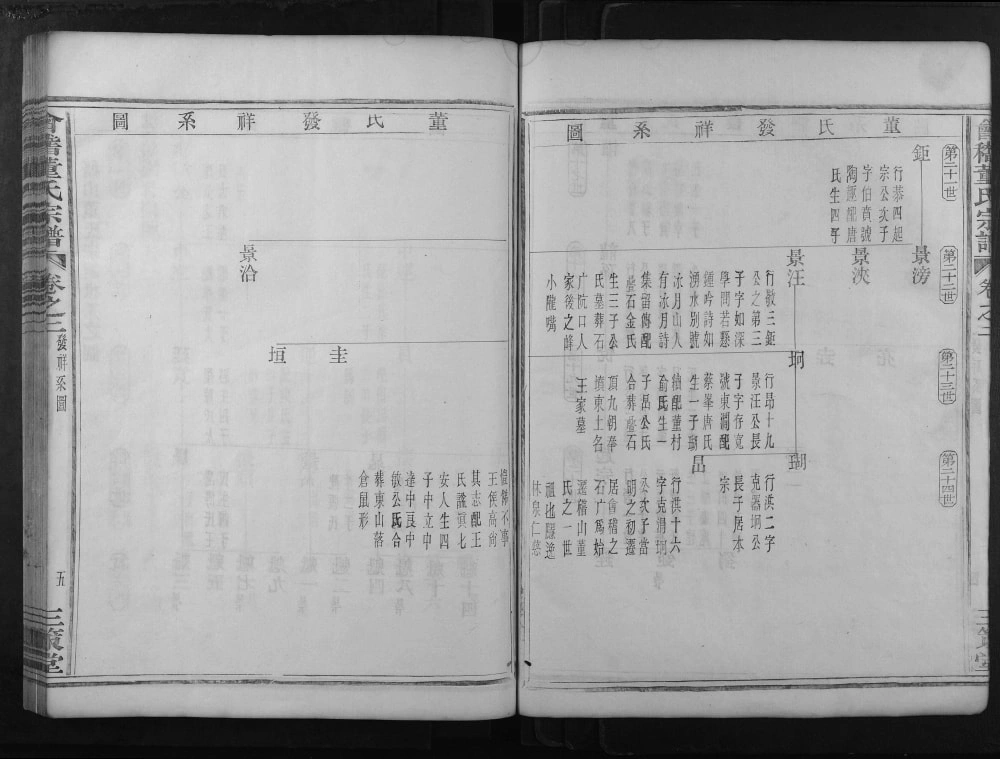 會稽董氏宗譜
卷之三
董氏發祥系圖
第二十一世
第二十二世
第二十三世
第二十四世
鉅
行恭四起
宗公次子
字伯賁號
氏生四子
景滂
景浹
景汪
行敬三鉅
公之第三
子字如深
學問若懸
鍾吟詩如
湧水別號
泳月山人
有泳月詩
集留傳配
石金氏
生三子公
氏墓葬石
广阬口人
家後之峰
小隴嘴
珂
行昂十九
景汪公長
子字存克
號東澗配
蔡峯唐氏
生一子瑚
繼配董村
俞氏生一
子昌公氏
合葬石
頂九朝奉
墳東土名
王家墓
瑚
行洪二字
克器珂公
長子居本
宗
昌
行洪十六
字克潤珂
公次子當
明之初遷
居會稽之
石广爲始
遷稽山董
氏之一世
祖也隱逸
林泉仁慈
董氏發祥系圖
景治
圭
垣
倜儻不事
王侯高尚
其志配王
氏諡眞七
安人生四
子中立中
達中良中
敏公氏合
葬東山落
倉鼠形
會稽董氏宗譜
卷之三
發祥系圖
五
三策堂
三策堂